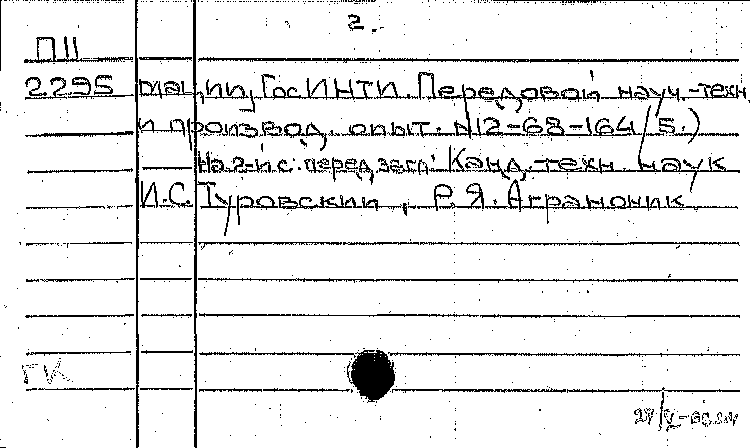 2.
П11
2295 мации, ГосИНТИ. Передовой науч.-техн.
и производ. опыт. №12-68-164/5.)
На 2-й с. перед загл: Канд. техн. наук
И.С. Туровский, Р.Я. Агранони́к
ГК